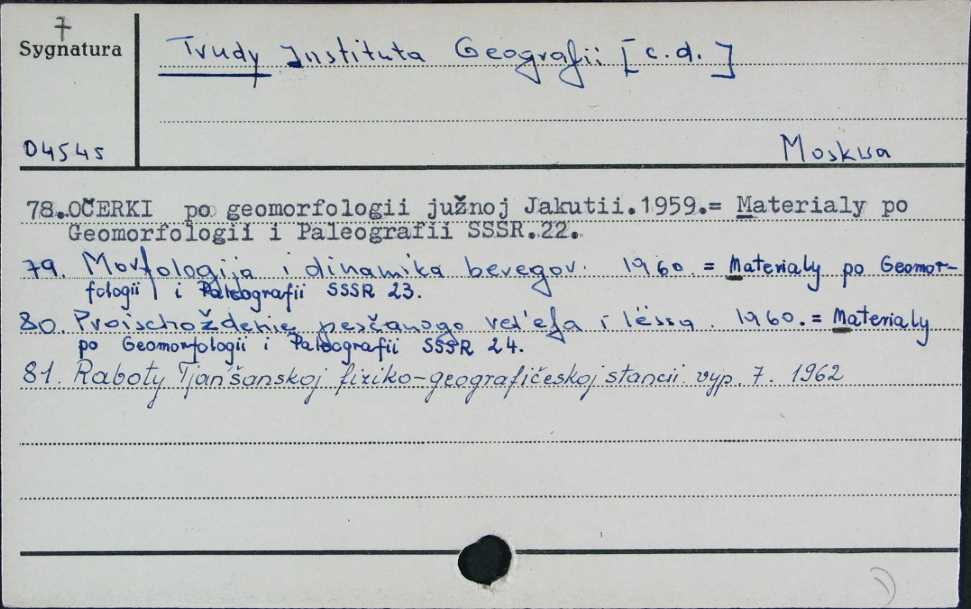 7
Sygnatura
Trudy Instituta Geografii [c.d.]
D4545
Moskwa
78. OČERKI po geomorfologii južnoj Jakutii.1959.= Materialy po
Geomorfologii i Paleografii SSSR.22.
79. Morfologija i dinamika beregov. 1960. = Materialy po Geomor-
fologii i Paleografii SSSR 23.
80. Proischoždenie pesčanogo rel'efa i lëssa. 1960. = Materialy
po Geomorfologii i Paleografii SSSR 24.
81. Raboty Tjan'šanskoj fiziko-geografičeskoj stancii. vyp. 7. 1962